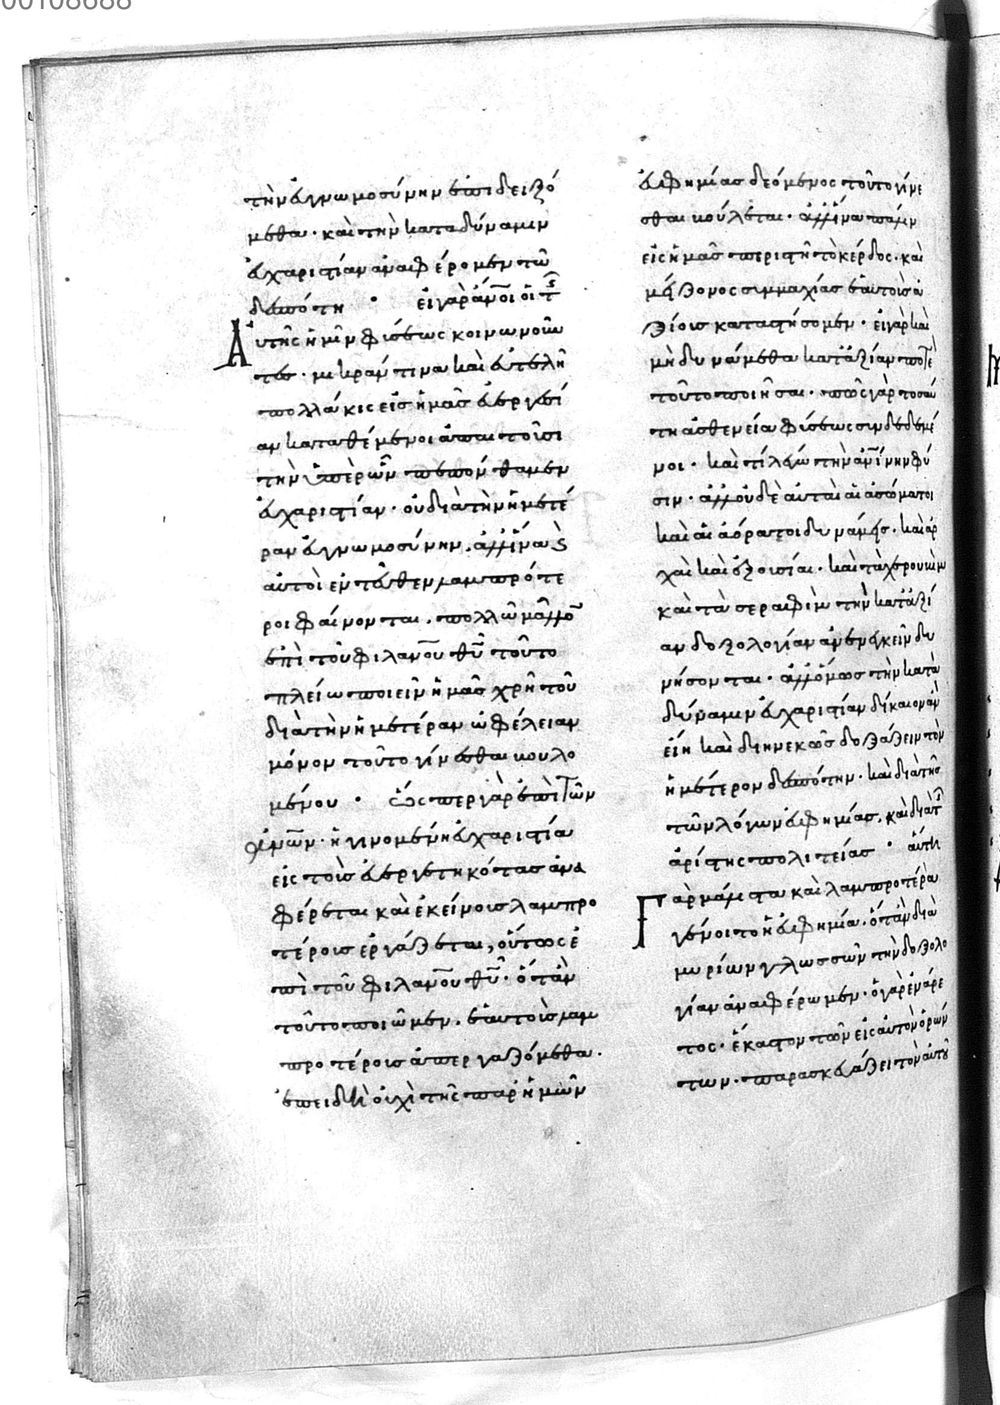 00108688
τὴν εὐγνωμοσύνην ἐπιδειξώ
μεθα· καὶ τὴν κατα δύναμιν
εὐχαριστίαν ἀναφέρομεν τῶ
δεσπότη · εἰ γὰρ ἄνοι οἱ τῆς
Αὐτῆς ἡμῖν φύσεως κοινωνοῦν
τες· μικράν τινα καὶ εὐτελῆ
πολλάκις εἰς ἡμᾶς εὐεργεσί
αν καταθέμενοι ἀπαιτοῦσι
τὴν ὑπὲρ ὧν πεπόνθαμεν
εὐχαριστίαν· οὐ διὰ τὴν ἡμετέ
ραν εὐγνωμοσύνην. ἀλλ' ἵνα καὶ
αὐτοὶ ἐντεῦθεν λαμπρότε
ροι φαίνονται. πολλῶ μᾶλλον
ἐπὶ τοῦ φιλανου θῦ τοῦτο
πλείω ποιεῖν ἡμᾶς χρὴ τοῦ
διὰ τὴν ἡμετέραν ὠφέλειαν
μόνον τοῦτο γίνεσθαι βουλο
μένου · ὥσπερ γὰρ ἐπὶ τῶν
ἀνῶν· ἡ γινομένη εὐχαριστία
εἰς τοὺς εὐεργετηκότας ἀνα
φέρεται καὶ ἐκείνους λαμπρο
τέρους ἐργάζεται, οὕτως ἐ
πὶ τοῦ φιλανου θῦ· ὅταν
τοῦτο ποιῶμεν. ἑαυτοὺς λαμ
προτέρους ἀπεργαζόμεθα.
ἐπειδὴ οὐχὶ τῆς παρ' ἡμῶν
εὐφημίας δεόμενος τοῦτο γίνε
σθαι βούλεται· ἀλλ' ἵνα πάλιν
εἰς ἡμᾶς περιστῆ τὸ κέρδος· καὶ
μείζονος συμμαχίας ἑαυτοὺς ἀ
ξίους καταστήσομεν· εἰ γὰρ καὶ
μὴ δυνάμεθα κατ' ἀξίαν ποτὲ
τοῦτο ποιῆσαι. πῶς γὰρ τοσαύ
τη ἀσθενεία φύσεως συνδεδεμέ
νοι· καὶ τί λέγω τὴν ἀνίνην φύ
σιν· ἀλλ' οὐδὲ αὐταὶ αἱ ἀσώματοι
καὶ αἱ ἀόρατοι δυνάμεις· καὶ ἀρ
χαὶ καὶ ἐξουσίαι· καὶ τὰ χερουβὶμ
καὶ τὰ σεραφὶμ τὴν κατ' ἀξί
αν δοξολογίαν ἀνενεγκεῖν δυ
νήσονται· ἀλλ' ὅμως τὴν κατὰ
δύναμιν εὐχαριστίαν δίκαιον ἂν
εἴη καὶ διηνεκῶς δοξάζειν τὸν
ἡμέτερον δεσπότην· καὶ διὰ τῆς
τῶν λόγων εὐφημίας. καὶ διὰ τῆς
ἀρίστης πολιτείας · αὕτη
Γὰρ μάλιστα καὶ λαμπροτέρα
γένοιτο ἡ εὐφημία· ὅταν διὰ
μυρίων γλωσσῶν τὴν δοξολο
γίαν ἀναφέρωμεν· ὁ γὰρ ἐνάρε
τος· ἕκαστον τῶν εἰς αὐτὸν ὁρών
των· παρασκευάζει τὸν αὐτοῦ